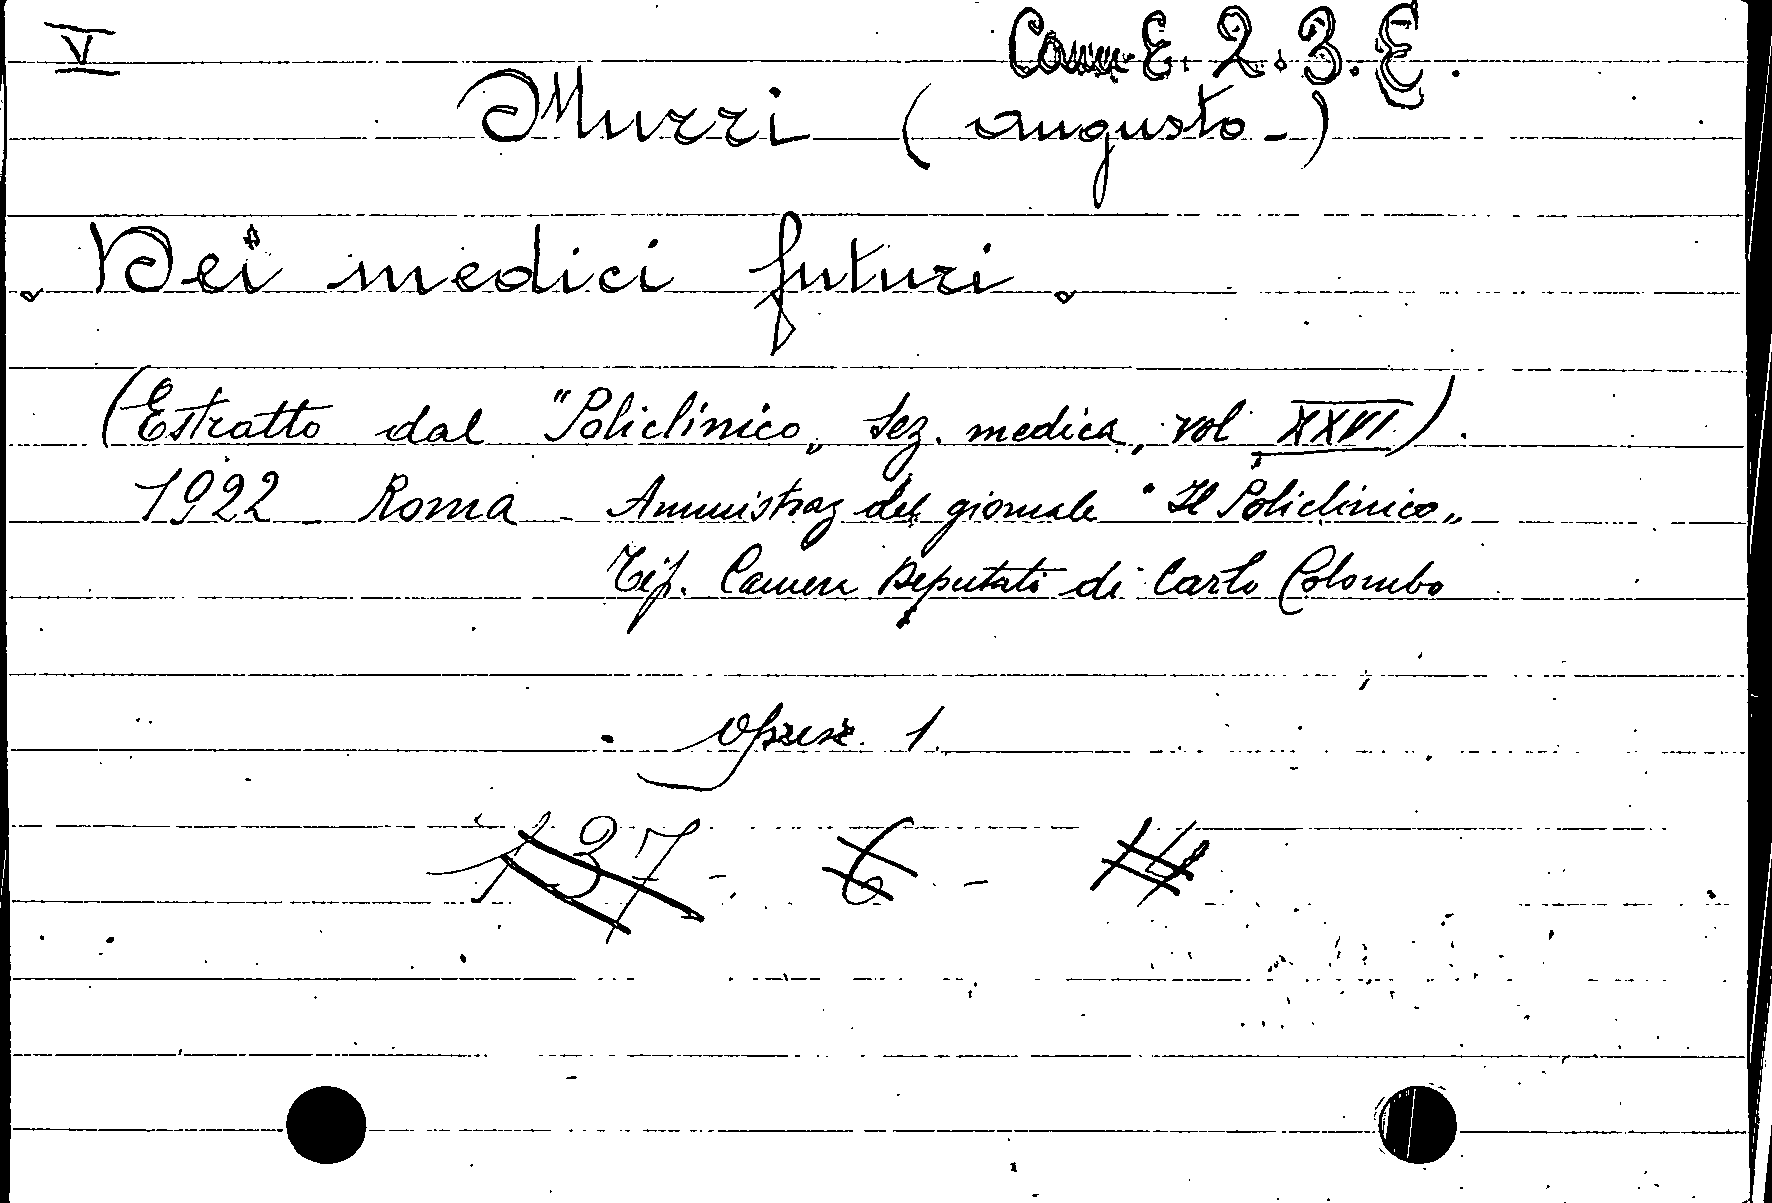 V
Cam E. 2. 3. E.
Murri (Augusto-)
"Dei medici futuri"
(Estratto dal "Policlinico" Sez. medica, vol XXVI).
1922 Roma - Ammistraz del giornale "Il Policlinico"
Tip. Camera Deputati di Carlo Colombo
Opusc. 1.
137 - 6 - 14